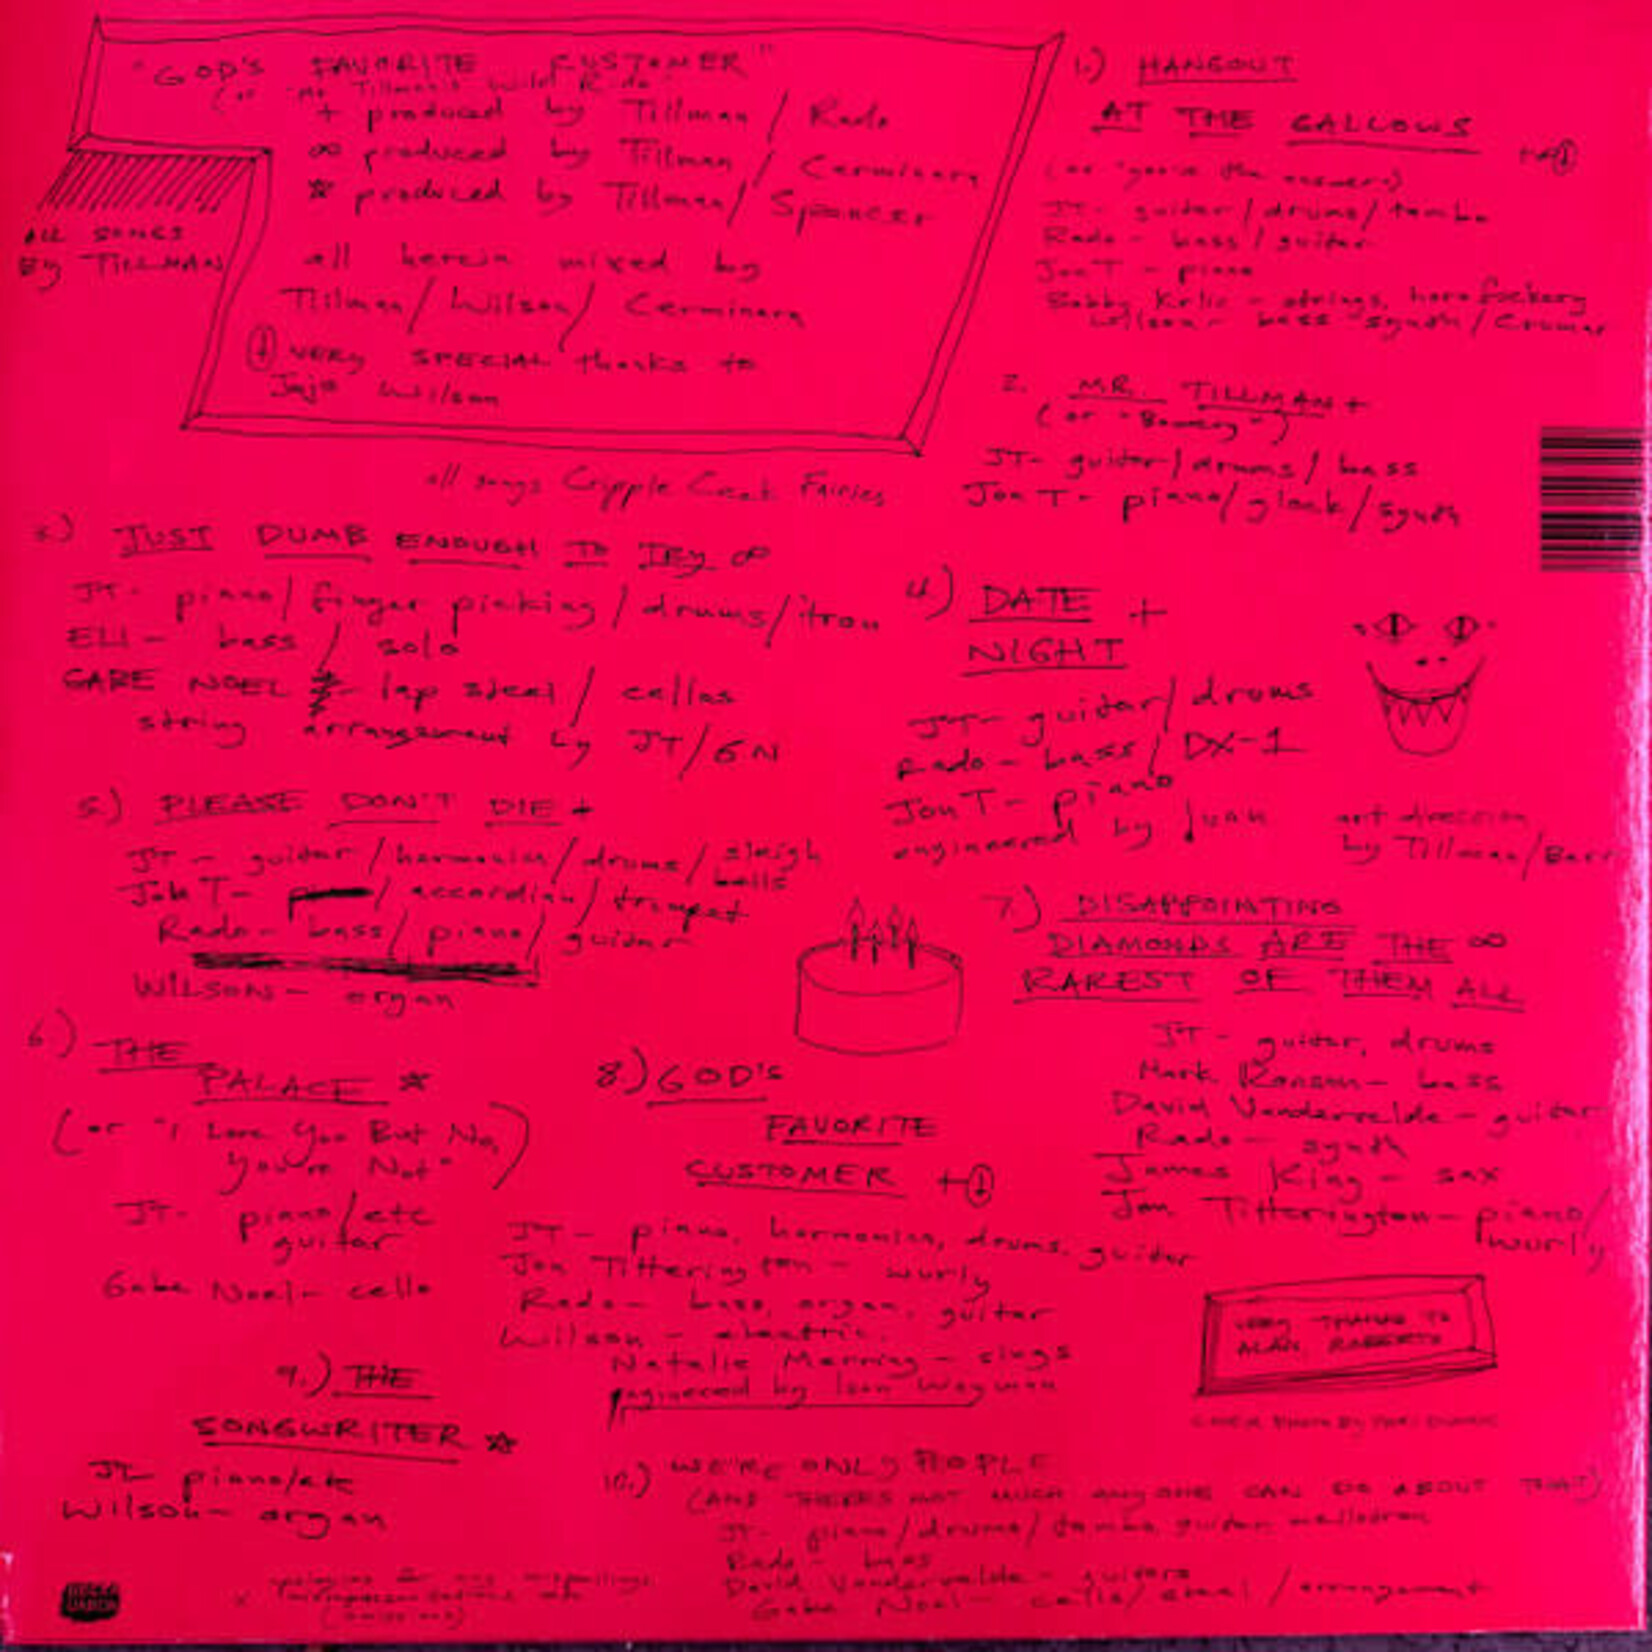 "GOD'S FAVORITE CUSTOMER"
(or "Mr. Tillman's Wild Ride"
+ produced by Tillman / Rado
∞ produced by Tillman / Cerminara
☆ produced by Tillman / Spencer
all herein mixed by
Tillman / Wilson / Cerminara
VERY SPECIAL thanks to
Jojo Wilson
ALL SONGS
By TILLMAN
all songs Cripple Creek Fairies
1.) HANGOUT
AT THE GALLOWS
JT - guitar / drums / tamba
Rado - bass / guitar
Jon T - piano
Bobby Krlic - strings, horn fuckery
Wilson - bass synth / Crumar
2. MR. TILLMAN +
(or "Bowery")
JT - guitar / drums / bass
Jon T - piano / glock / synth
3) JUST DUMB ENOUGH TO TRy ∞
JT - piano / finger picking / drums / itron
ELI - bass / solo
GABE NOEL - lap steel / cellos
string arrangement by JT/GN
4) DATE +
NIGHT
JT - guitar / drums
Rado - bass / DX-1
Jon T - piano
engineered by
art direction
by Tillman /
5) PLEASE DON'T DIE +
JT - guitar / harmonica / drums / sleigh bells
Jon T - / accordian / trumpet
Rado - bass / piano / guitar
WILSON - organ
6) THE
PALACE ☆
(or "I Love You But No,
You're Not")
JT - piano / etc
guitar
Gabe Noel - cello
7.) DISAPPOINTING
DIAMONDS ARE THE ∞
RAREST OF THEM ALL
JT - guitar, drums
Mark Ronson - bass
David Vandervelde - guitar
Rado - synth
James King - sax
Jon Titterington - piano /
wurly
8) GOD'S
FAVORITE
CUSTOMER +
JT - piano, harmonica, drums, guitar
Jon Titterington - wurly
Rado - bass, organ, guitar
Wilson - electric
Natalie Merring - sings
engineered by
VERy THANKS TO
ALAN, ROBERTO
COVER PHOTO By
9.) THE
SONGWRITER ☆
JT piano/etc
Wilson - organ
10.) WE'RE ONLy PEOPLE
(AND THERE'S NOT MUCH ANyONE CAN DO ABOUT THAT)
JT - piano / drums / tamba, guitar, mellotron
Rado - bass
David Vandervelde - guitars
Gabe Noel - cello / steel / arrangement
apologies for any mispellings